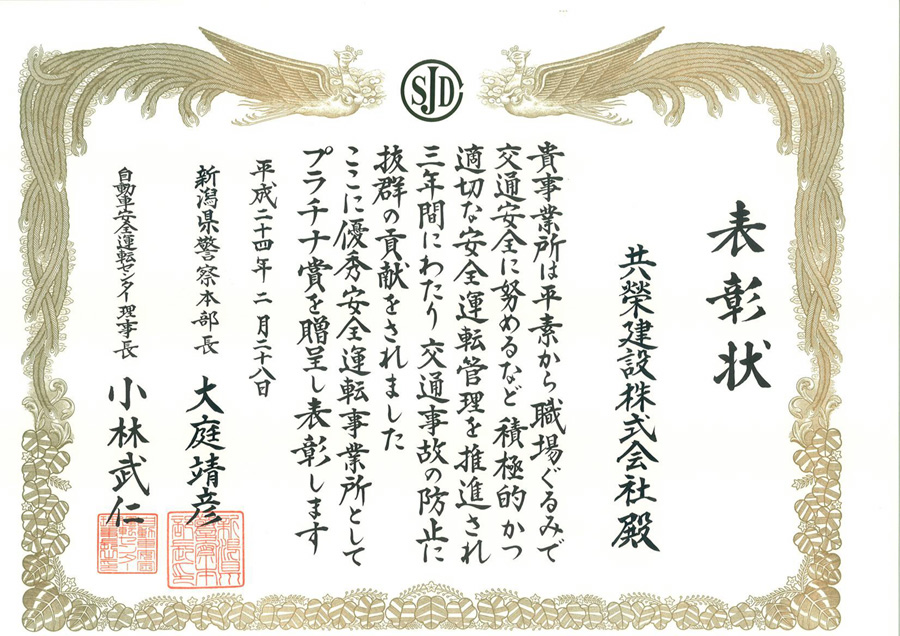 SJDC
表彰状
共榮建設株式会社殿
貴事業所は平素から職場ぐるみで
交通安全に努めるなど積極的かつ
適切な安全運転管理を推進され
三年間にわたり交通事故の防止に
抜群の貢献をされました
ここに優秀安全運転事業所として
プラチナ賞を贈呈し表彰します
平成二十四年二月二十八日
新潟県警察本部長 大庭靖彦
自動車安全運転センター理事長 小林武仁